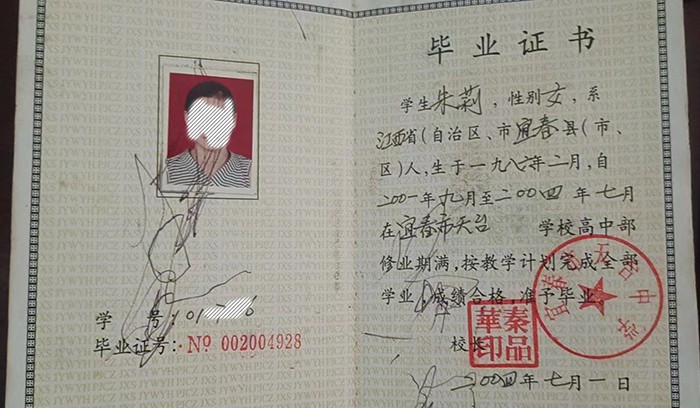 学 号：01
毕业证号：Nº 002004928
毕业证书
学生朱莉，性别女，系
江西省（自治区、市宜春县（市、
区）人，生于一九八六年二月，自
二00一年九月至二00四年七月
在宜春市天台 学校高中部
修业期满，按教学计划完成全部
学业，成绩合格，准予毕业。
校长
華秦
印品
二00四年七月一日